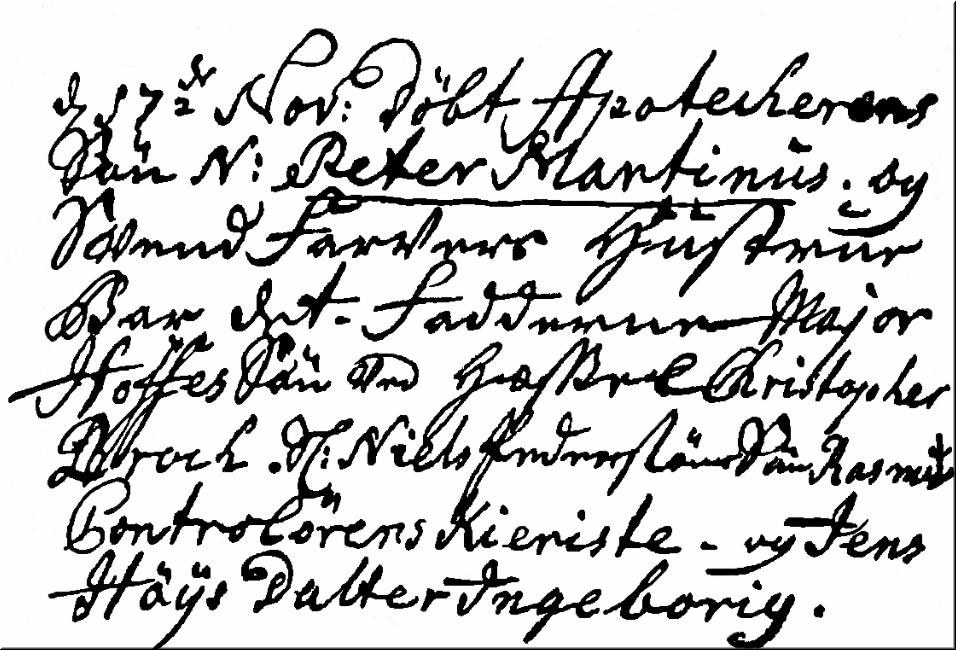 d 17de Nov: döbt Apotecherens
Sön N: Peter Martinus. og
Svend Farvers Hüstrue
Bar det. Fadderne Major
Hoffes Sön Christopher
Broch. Sl: Niels Sön Rasmus
Controlörens Kieriste - og Jens
Höÿs Datter Ingeborig.